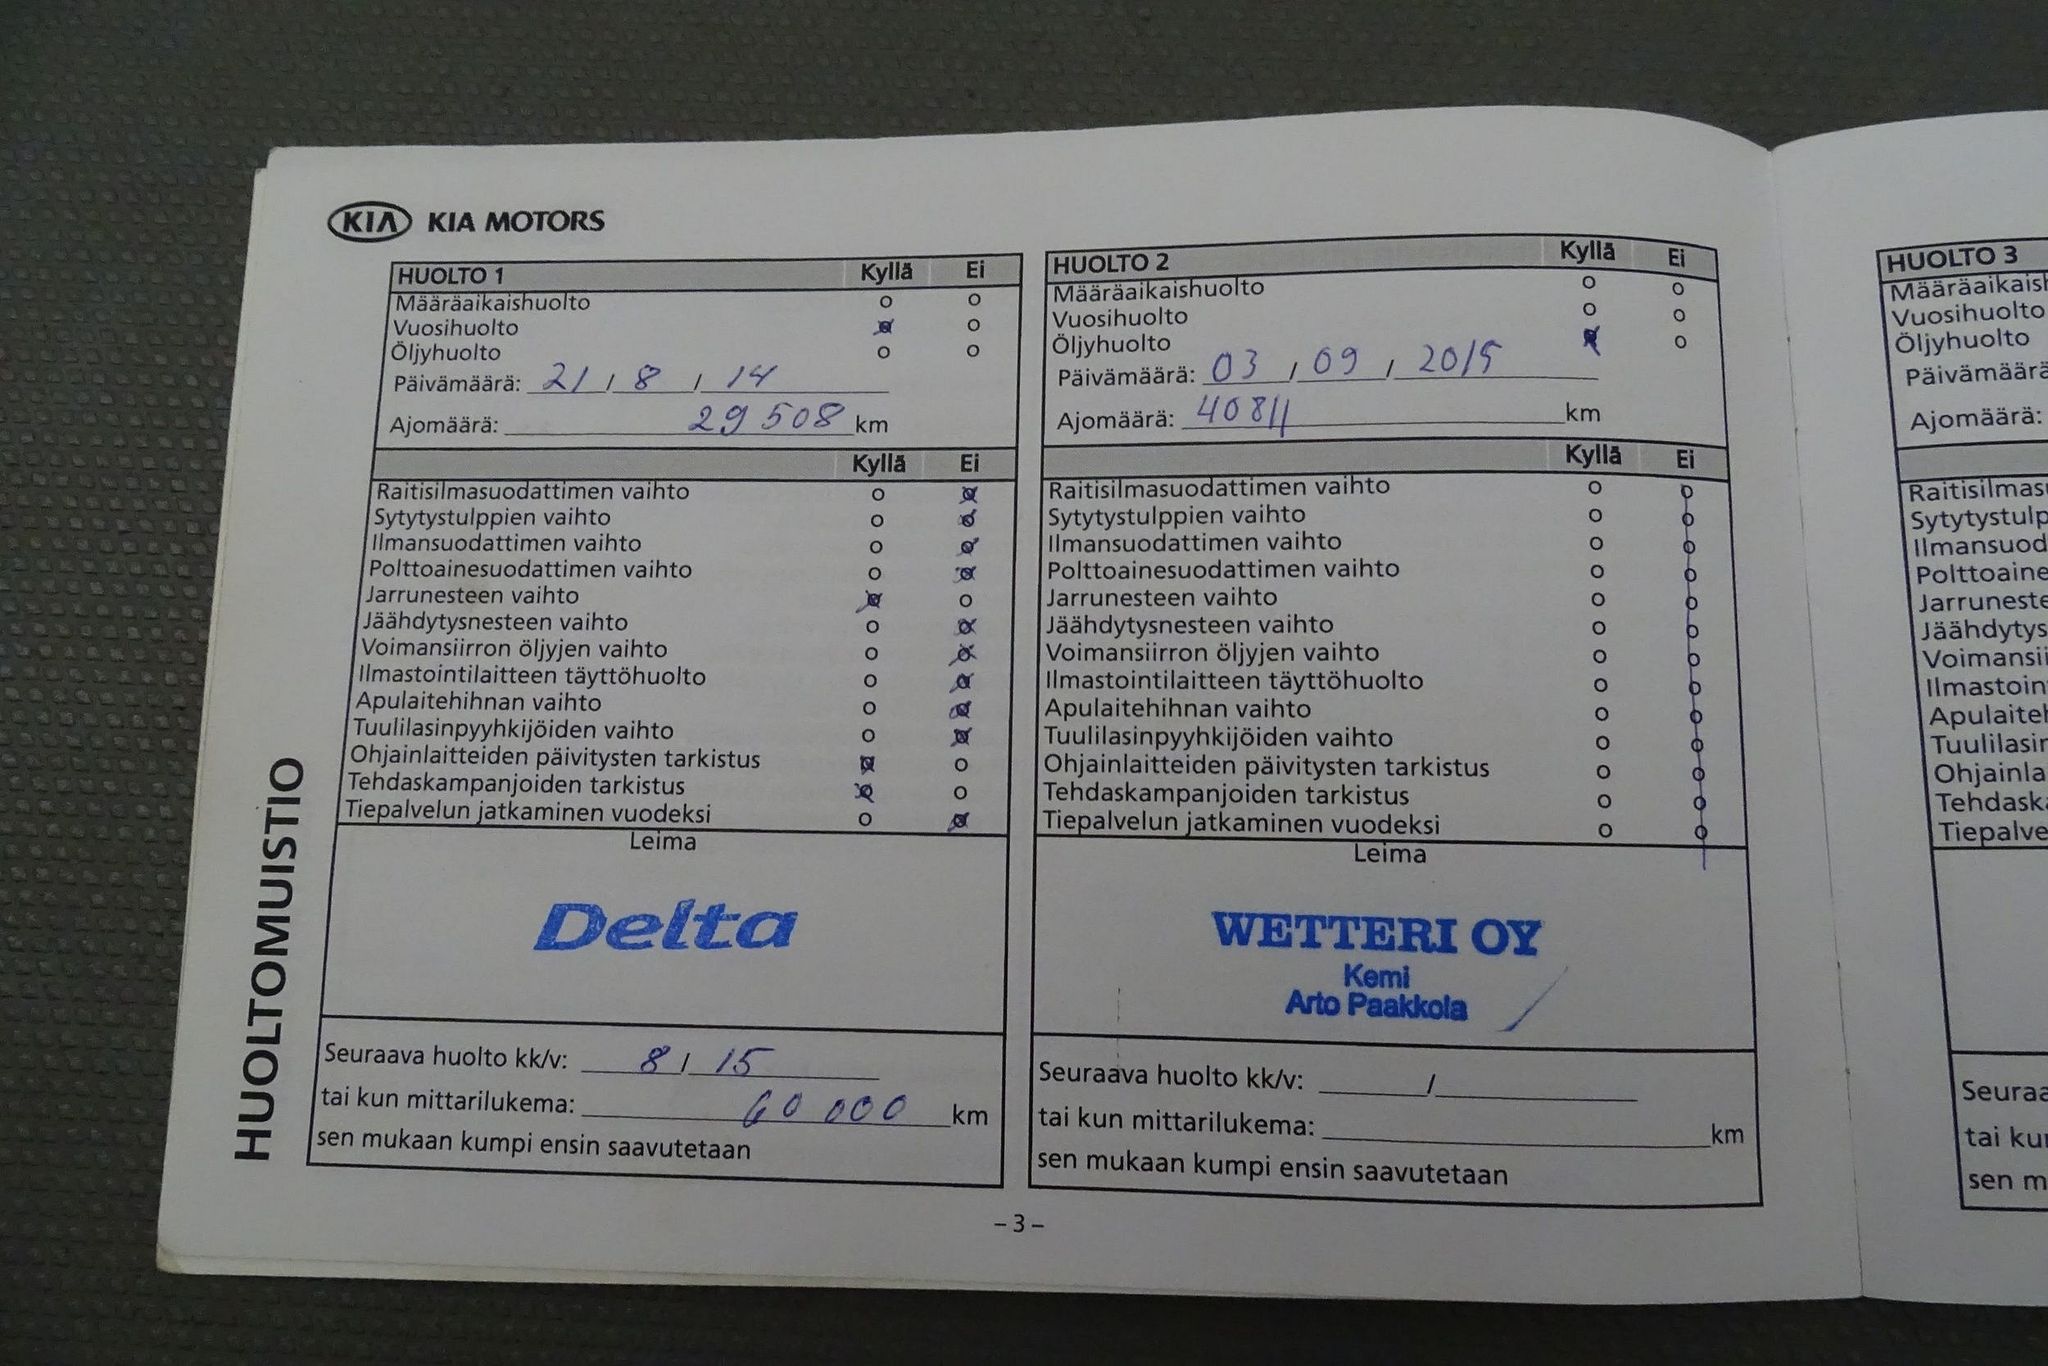 KIA KIA MOTORS
HUOLTOMUISTIO
HUOLTO 1 Kyllä Ei
Määräaikaishuolto o o
Vuosihuolto o o
Öljyhuolto o o
Päivämäärä: 21 / 8 / 14
Ajomäärä: 29 508 km
Kyllä Ei
Raitisilmasuodattimen vaihto o o
Sytytystulppien vaihto o o
Ilmansuodattimen vaihto o o
Polttoainesuodattimen vaihto o o
Jarrunesteen vaihto o o
Jäähdytysnesteen vaihto o o
Voimansiirron öljyjen vaihto o o
Ilmastointilaitteen täyttöhuolto o o
Apulaitehihnan vaihto o o
Tuulilasinpyyhkijöiden vaihto o o
Ohjainlaitteiden päivitysten tarkistus o o
Tehdaskampanjoiden tarkistus o o
Tiepalvelun jatkaminen vuodeksi o o
Leima
Delta
Seuraava huolto kk/v: 8 / 15
tai kun mittarilukema: 60 000 km
sen mukaan kumpi ensin saavutetaan
HUOLTO 2 Kyllä Ei
Määräaikaishuolto o o
Vuosihuolto o o
Öljyhuolto o o
Päivämäärä: 03 / 09 / 2015
Ajomäärä: 40811 km
Kyllä Ei
Raitisilmasuodattimen vaihto o o
Sytytystulppien vaihto o o
Ilmansuodattimen vaihto o o
Polttoainesuodattimen vaihto o o
Jarrunesteen vaihto o o
Jäähdytysnesteen vaihto o o
Voimansiirron öljyjen vaihto o o
Ilmastointilaitteen täyttöhuolto o o
Apulaitehihnan vaihto o o
Tuulilasinpyyhkijöiden vaihto o o
Ohjainlaitteiden päivitysten tarkistus o o
Tehdaskampanjoiden tarkistus o o
Tiepalvelun jatkaminen vuodeksi o o
Leima
WETTERI OY
Kemi
Arto Paakkola
Seuraava huolto kk/v: /
tai kun mittarilukema: km
sen mukaan kumpi ensin saavutetaan
– 3 –
HUOLTO 3
Määräaikaish
Vuosihuolto
Öljyhuolto
Päivämäärä
Ajomäärä:
Raitisilmas
Sytytystulp
Ilmansuod
Polttoaine
Jarruneste
Jäähdytys
Voimansii
Ilmastoin
Apulaiteh
Tuulilasin
Ohjainla
Tehdaska
Tiepalve
Seuraa
tai ku
sen m